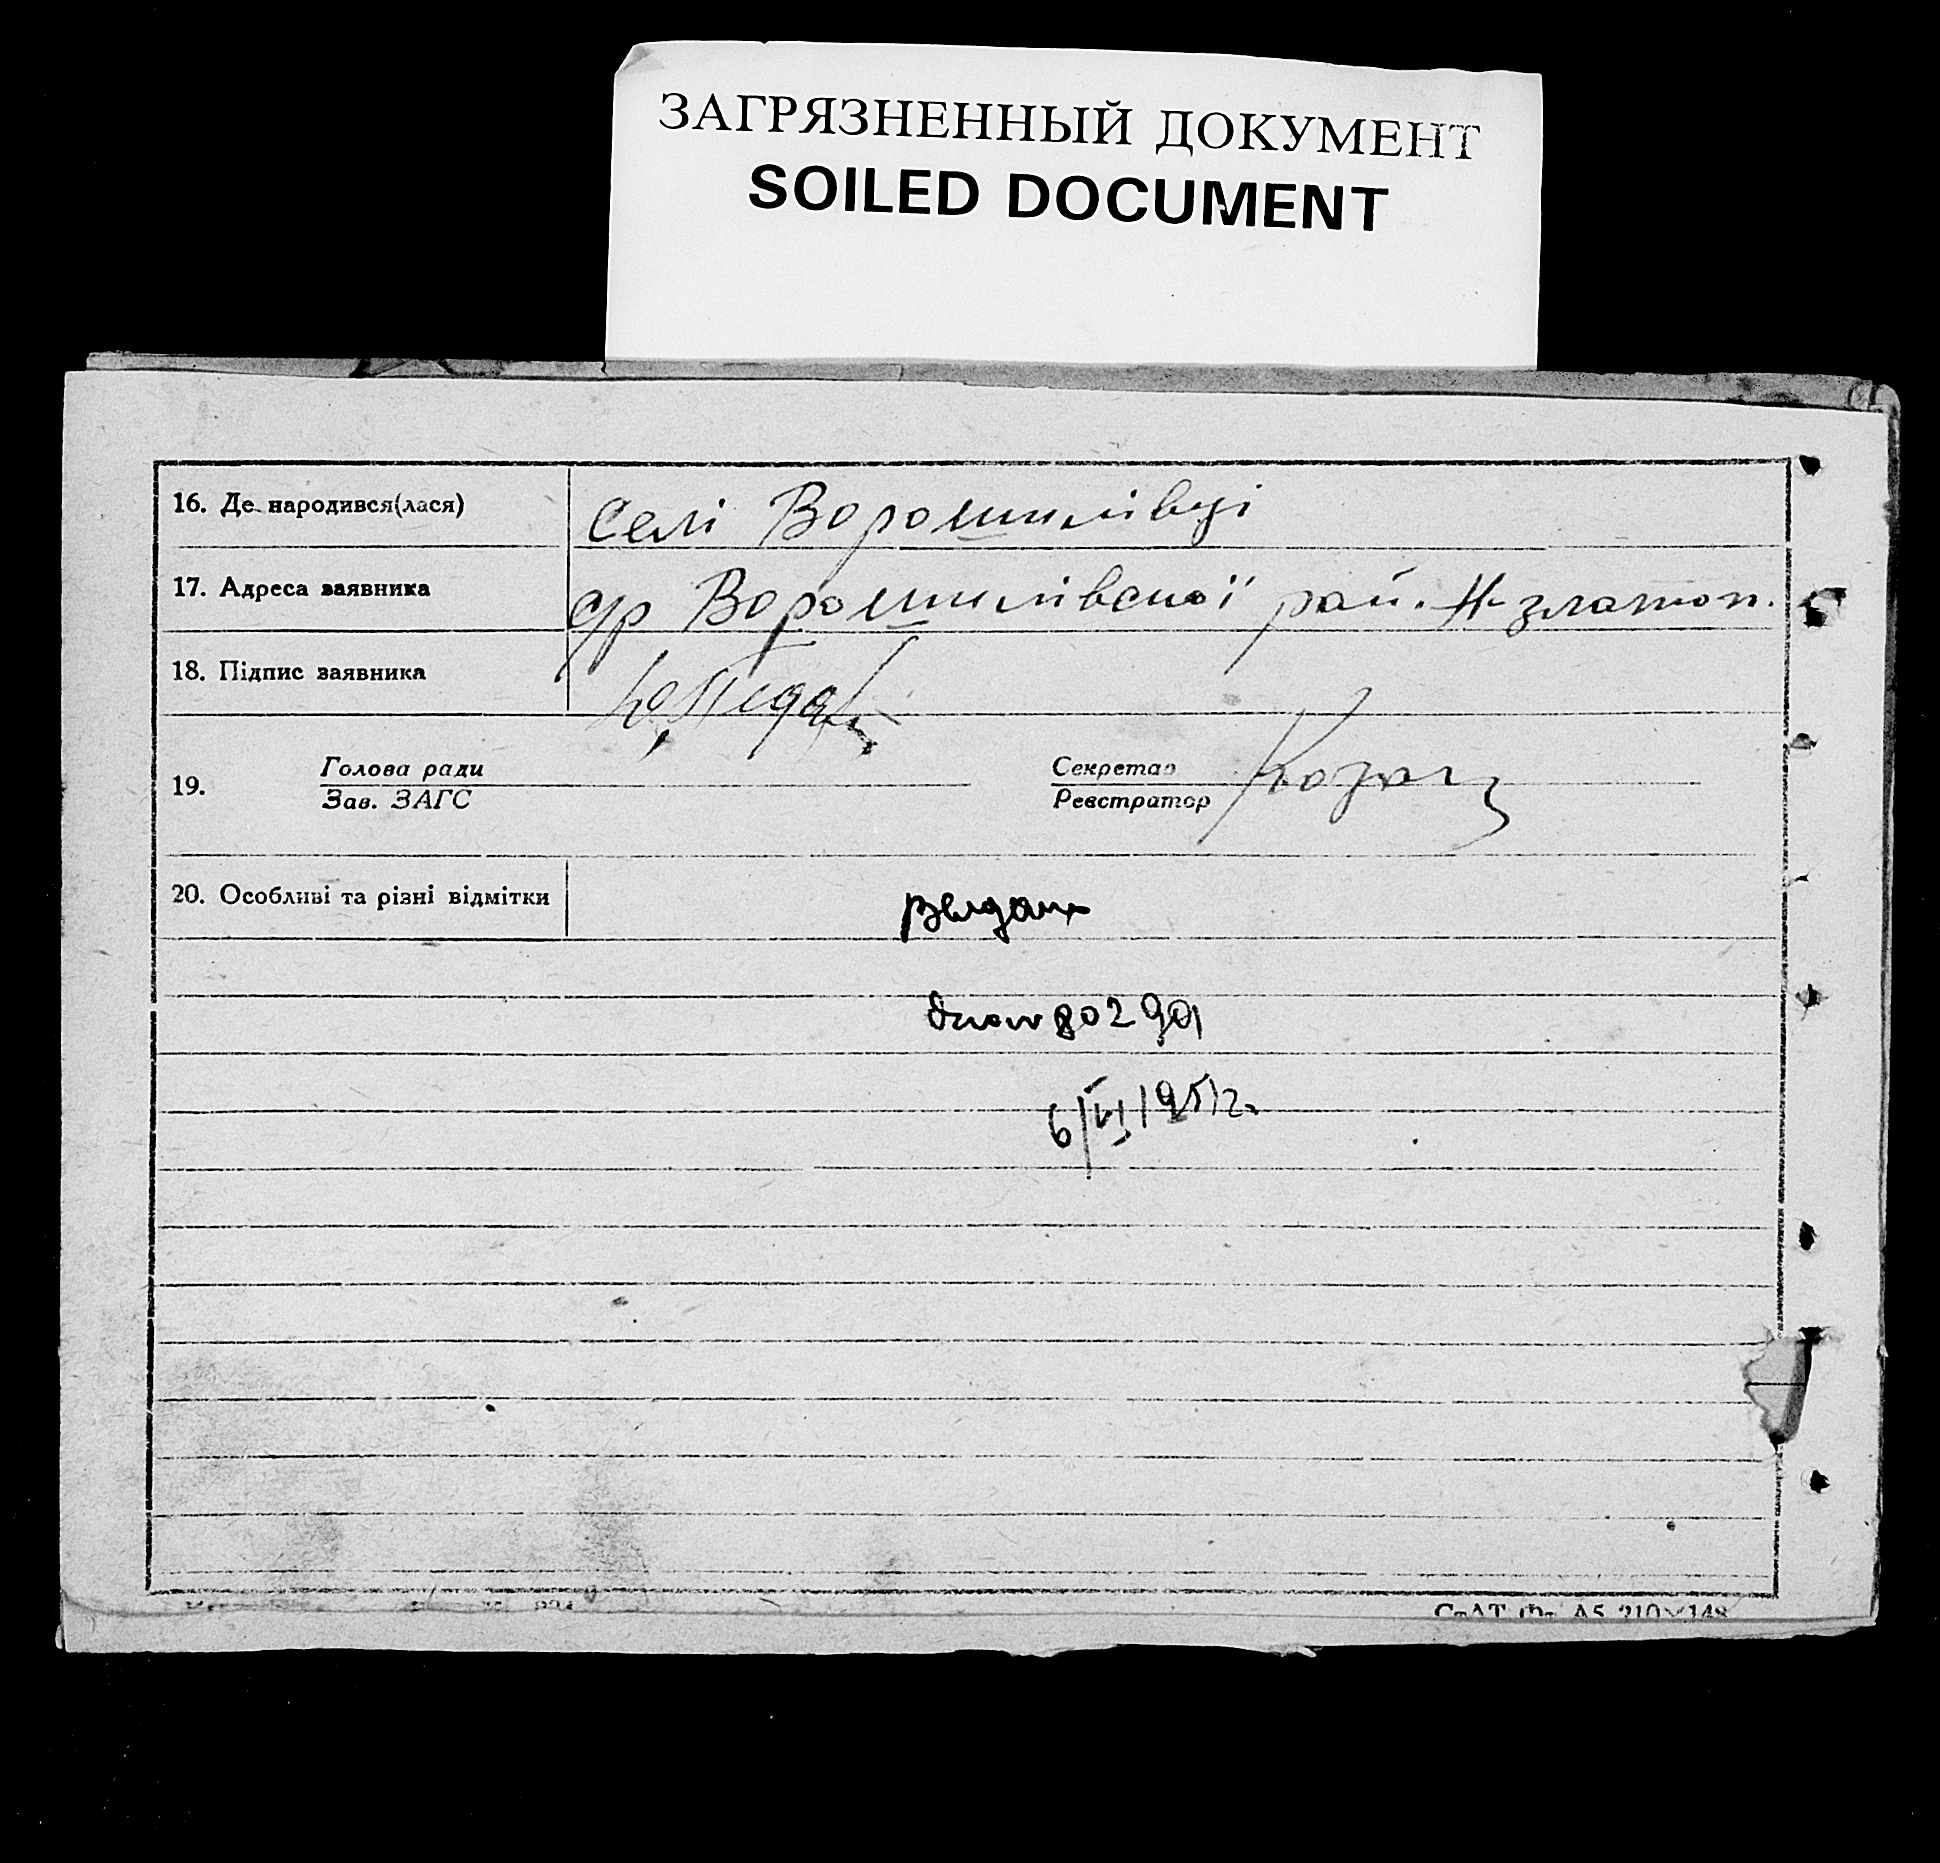 ЗАГРЯЗНЕННЫЙ ДОКУМЕНТ
SOILED DOCUMENT
16. Де народився(лася) Селі Ворошилівці
17. Адреса заявника с/р Ворошилівської рай. Н-златоп.
18. Підпис заявника
19. Голова ради
Зав. ЗАГС
Секретар
Реєстратор
20. Особливі та різні відмітки
6/VI 1951г.
А5 210×148